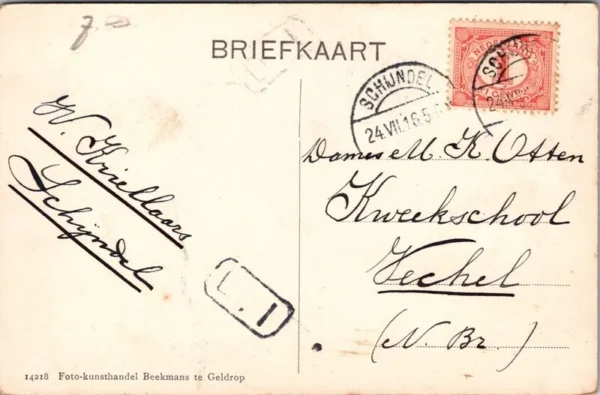 7.-
BRIEFKAART
NEDERLAND
SCHIJNDEL
24.VII.16.5
SCHIJNDEL
24.VII
W. Kriellaars
Schijndel
Dames M. K. Otten
Kweekschool
Vechel
(N. Br.)
L. 1
14218 Foto-kunsthandel Beekmans te Geldrop